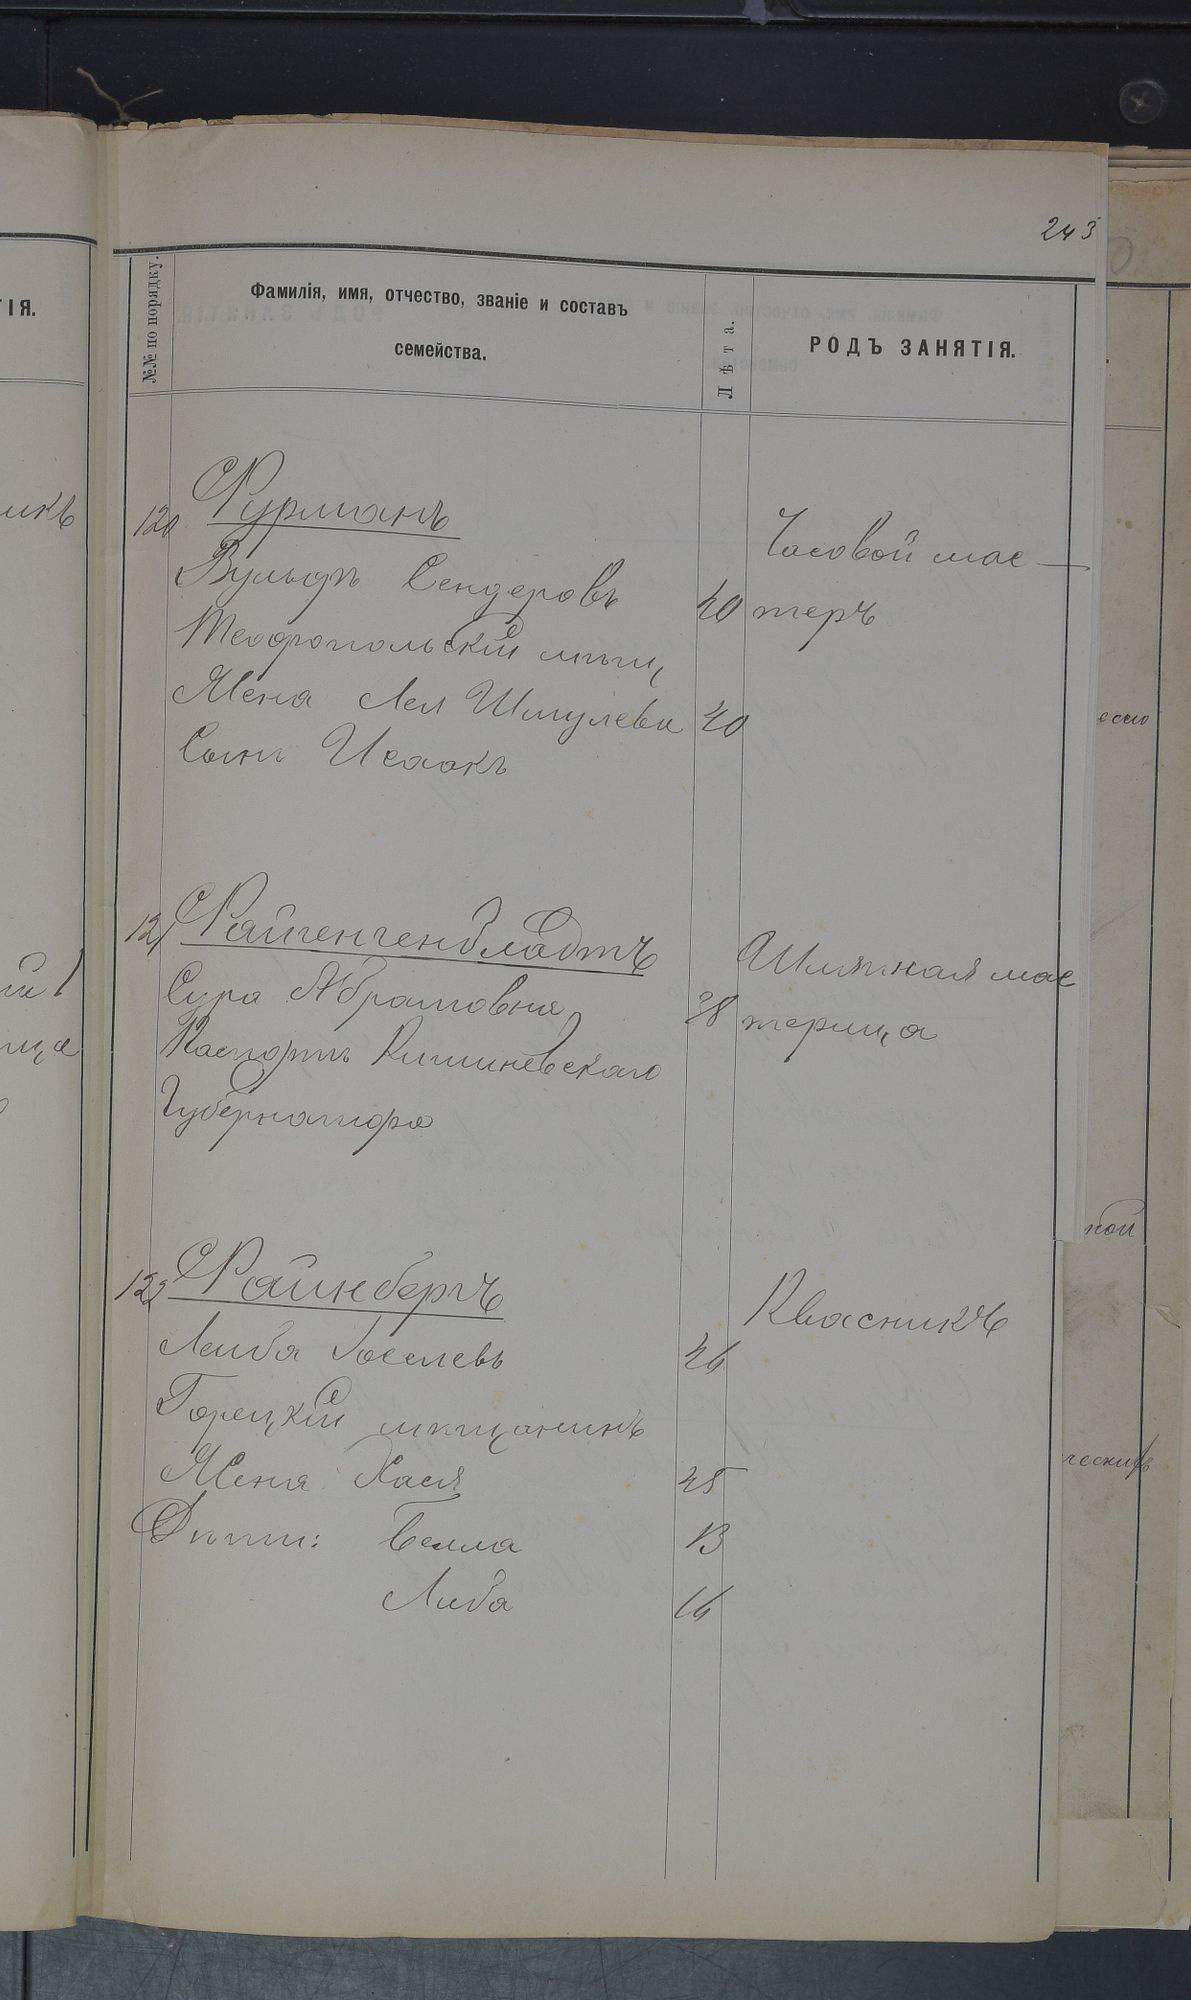 243
№№ по порядку.
Фамилія, имя, отчество, званіе и составъ
семейства.
Лѣта.
РОДЪ ЗАНЯТІЯ.
120 Фурманъ
Вульфъ Сендеровъ 40
Часовой мас-
теръ
Теофропольскій мѣщ
Жена Лея Шмулева 40
Сынъ Исаакъ
121 Файгенгенбладтъ
Сура Абрамовна 38
Шляпная мас
терица
Паспортъ Кишиневскаго
Губернатора
122 Файнбергъ
Квасникъ
Лейба Іоселевъ 46
Горецкій мѣщанинъ
Жена Хася 45
Дѣти: Белла 13
Либа 16
ТІЯ.
икъ
ица
ной